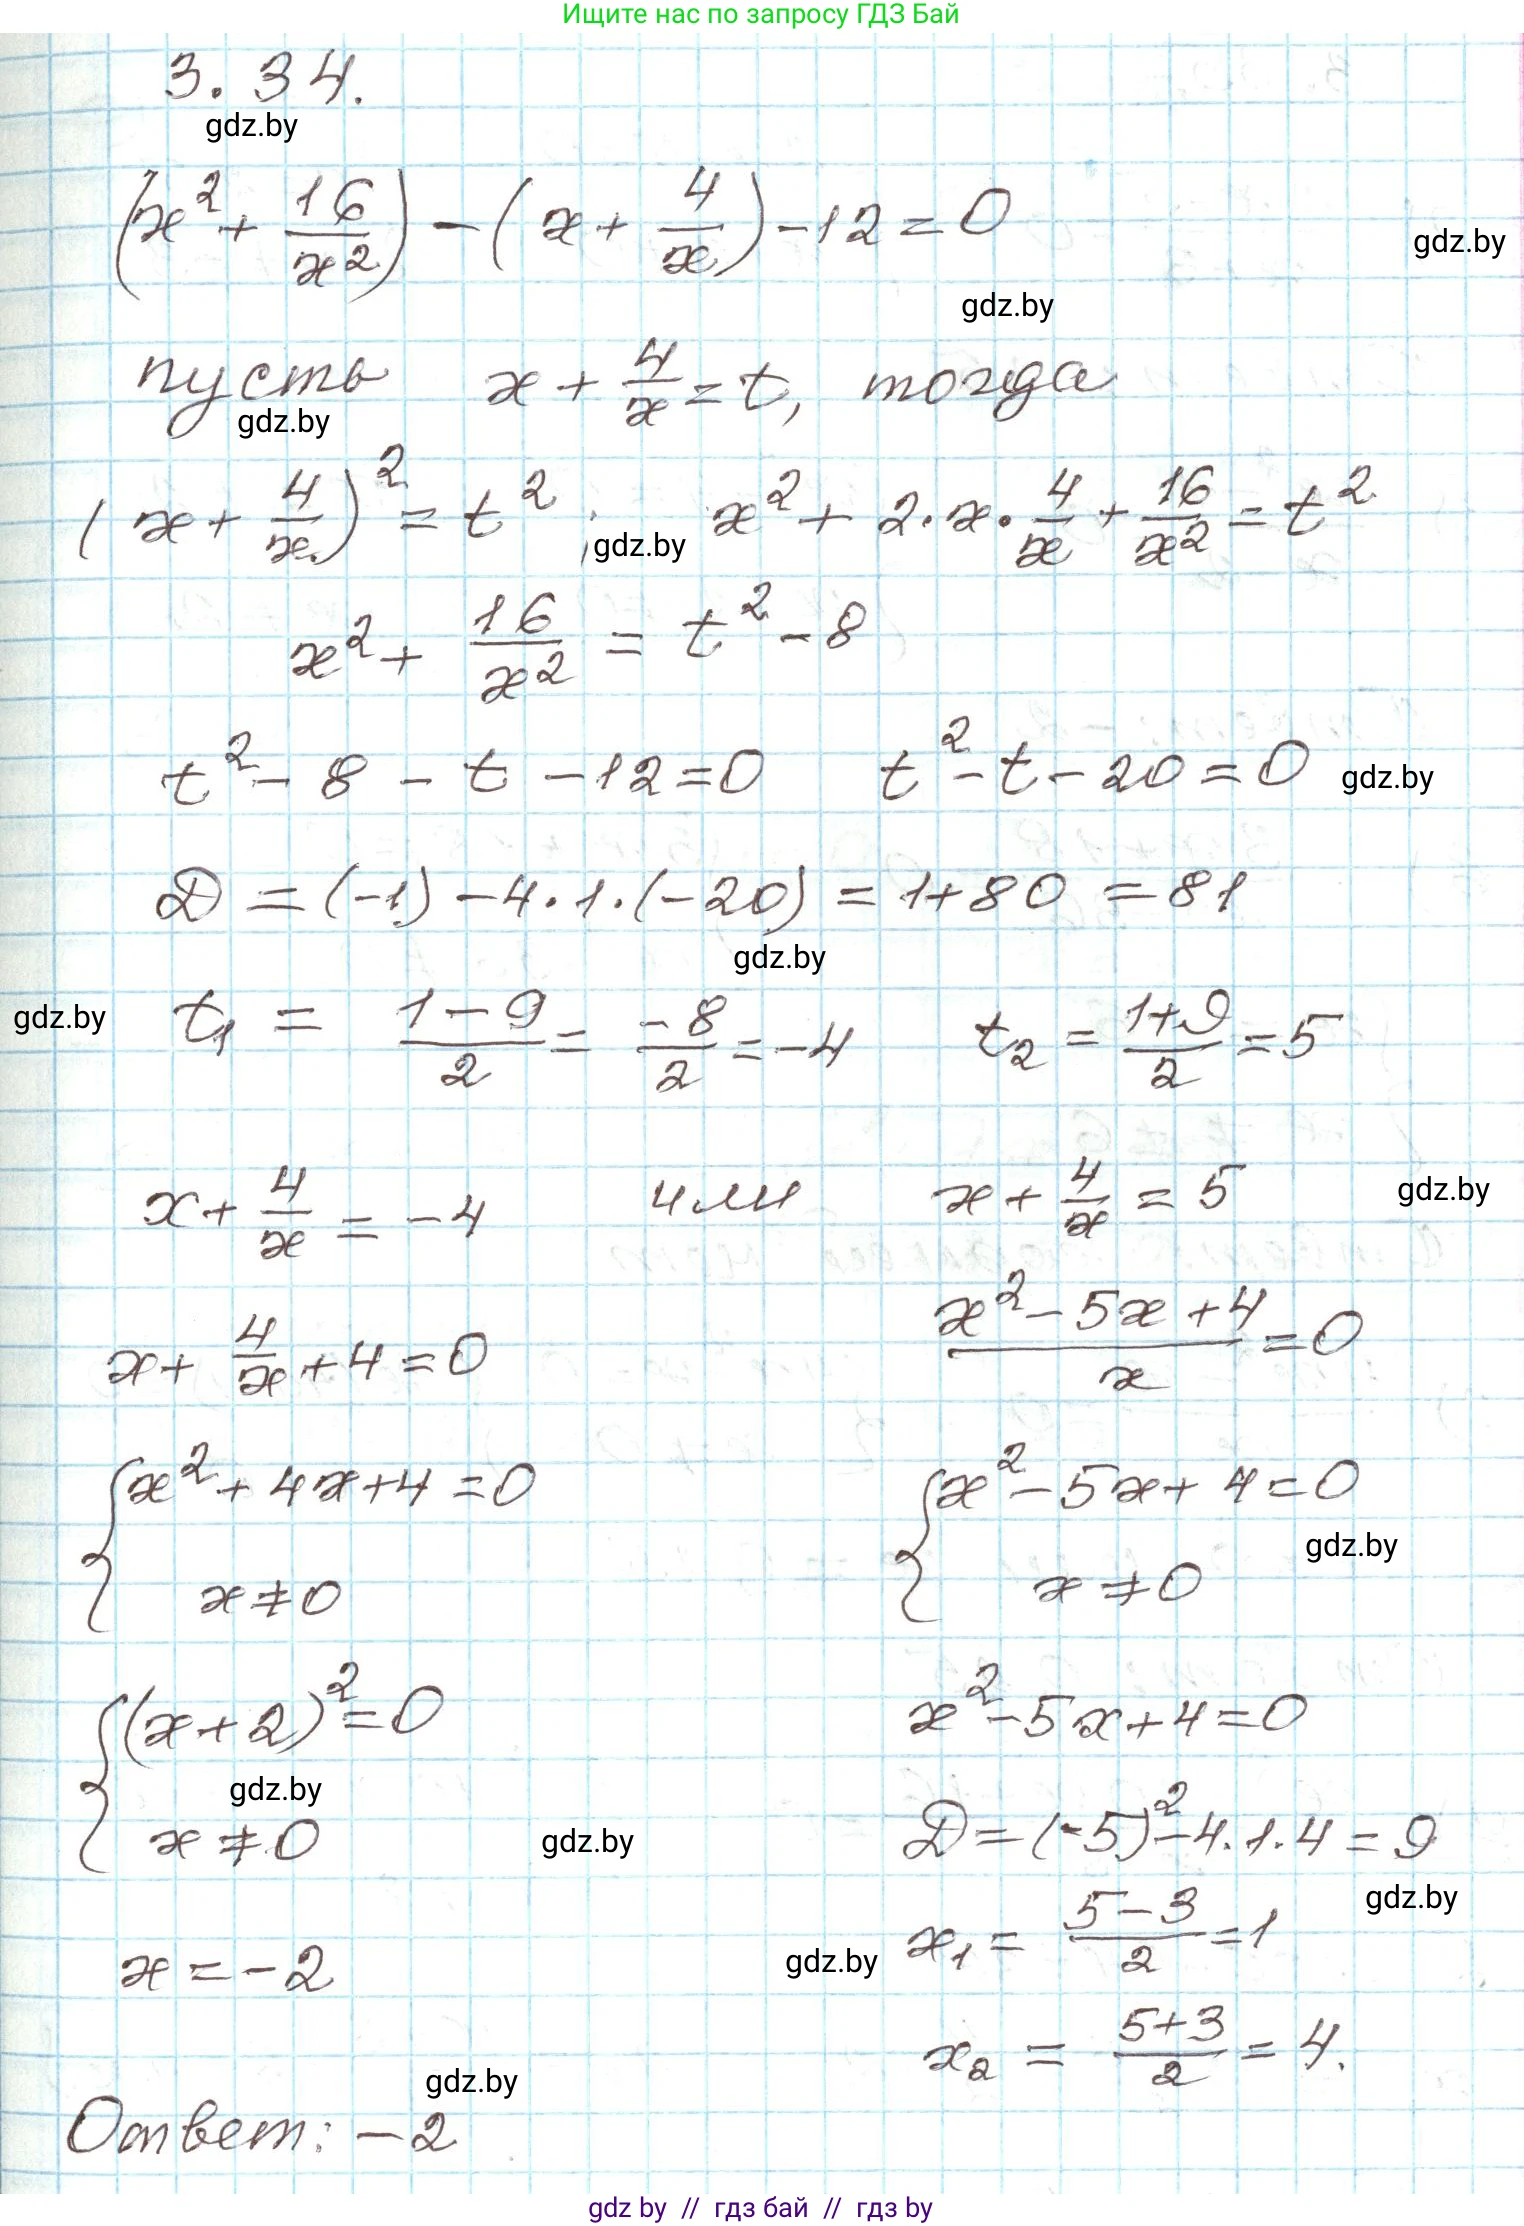 Ищите нас по запросу ГДЗ Бай
3.34.
gdz.by
(x² + 16/x²) - (x + 4/x) - 12 = 0
gdz.by
gdz.by
пусть x + 4/x = t, тогда
gdz.by
(x + 4/x)² = t²; x² + 2·x·4/x + 16/x² = t²
gdz.by
x² + 16/x² = t² - 8
t² - 8 - t - 12 = 0 t² - t - 20 = 0
gdz.by
D = (-1) - 4·1·(-20) = 1 + 80 = 81
gdz.by
gdz.by
t₁ = (1 - 9)/2 = -8/2 = -4 t₂ = (1+9)/2 = 5
x + 4/x = -4 или x + 4/x = 5
gdz.by
x + 4/x + 4 = 0 (x² - 5x + 4)/x = 0
{ x² + 4x + 4 = 0 { x² - 5x + 4 = 0
gdz.by
x ≠ 0 x ≠ 0
{ (x + 2)² = 0 x² - 5x + 4 = 0
gdz.by
x ≠ 0 D = (-5)² - 4·1·4 = 9
gdz.by
gdz.by
x = -2 x₁ = (5 - 3)/2 = 1
gdz.by
x₂ = (5+3)/2 = 4.
gdz.by
Ответ: -2
gdz by // гдз бай // гдз by